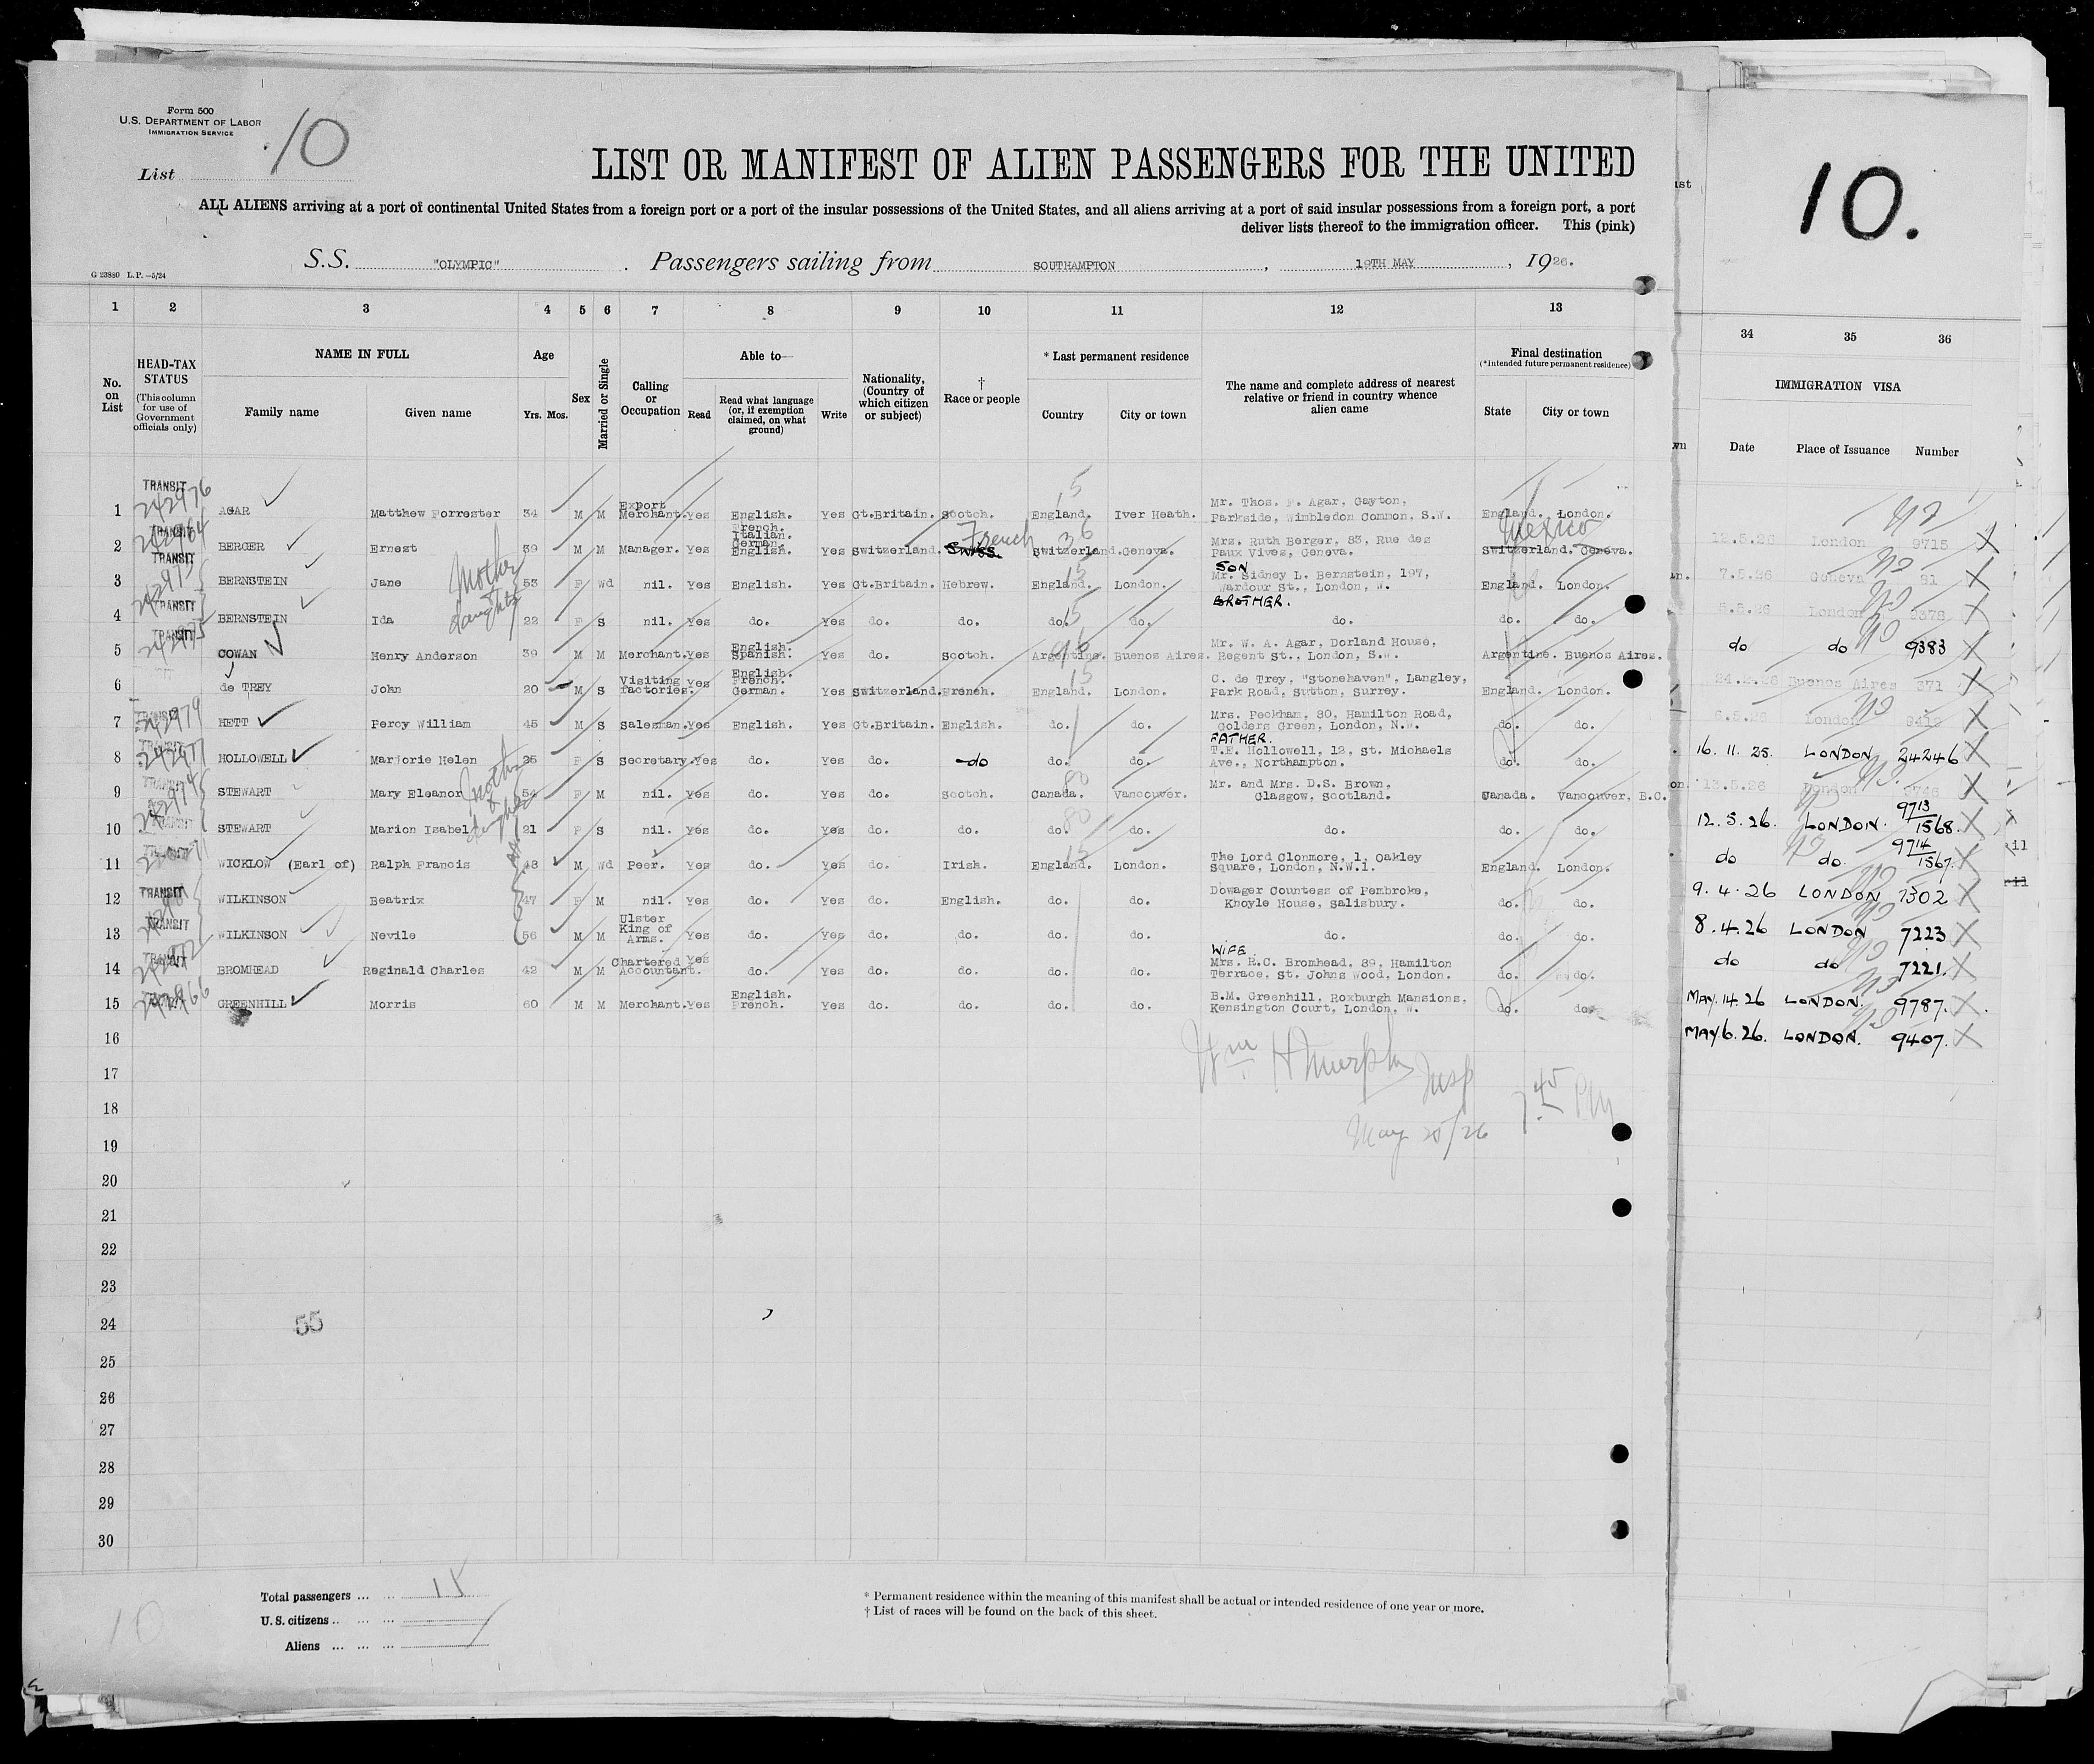 Form 500
U.S. DEPARTMENT OF LABOR
IMMIGRATION SERVICE
List 10
LIST OR MANIFEST OF ALIEN PASSENGERS FOR THE UNITED
ALL ALIENS arriving at a port of continental United States from a foreign port or a port of the insular possessions of the United States, and all aliens arriving at a port of said insular possessions from a foreign port, a port
deliver lists thereof to the immigration officer. This (pink)
G 23880 L.P.—5/24
S.S. "OLYMPIC" . Passengers sailing from SOUTHAMPTON, 19TH MAY, 1926.
10.
1 2 3 4 5 6 7 8 9 10 11 12 13 34 35 36
No. on List
HEAD-TAX STATUS (This column for use of Government officials only)
NAME IN FULL Family name Given name
Age Yrs. Mos.
Sex
Married or Single
Calling or Occupation
Able to— Read Read what language (or, if exemption claimed, on what ground) Write
Nationality, (Country of which citizen or subject)
† Race or people
* Last permanent residence Country City or town
The name and complete address of nearest relative or friend in country whence alien came
Final destination (*intended future permanent residence) State City or town
IMMIGRATION VISA Date Place of Issuance Number
1 TRANSIT 242976 AGAR Matthew Forrester 34 M M Export Merchant. Yes English. Yes Gt.Britain. Scotch. England. Iver Heath. Mr. Thos. F. Agar, Gayton, Parkside, Wimbledon Common, S.W. England. London.
2 TRANSIT BERGER Ernest 39 M M Manager. Yes French. Italian. German. English. Yes Switzerland. Swiss. French Switzerland. Geneva. Mrs. Ruth Berger, 83, Rue des Paux Vives, Geneva. Switzerland. Geneva. Mexico 12.5.26 London 9715
3 TRANSIT BERNSTEIN Jane Mother 53 F Wd nil. Yes English. Yes Gt.Britain. Hebrew. England. London. SON Mr. Sidney L. Bernstein, 197, Wardour St., London, W. England. London. 7.5.26 Geneva 81
4 TRANSIT BERNSTEIN Ida daughter 22 F S nil. Yes do. Yes do. do. do. do. BROTHER. do. do. do. 5.5.26 London 9378
5 TRANSIT COWAN Henry Anderson 39 M M Merchant. Yes English. Spanish. Yes do. Scotch. Argentine. Buenos Aires. Mr. W. A. Agar, Dorland House, Regent St., London, S.W. Argentine. Buenos Aires. do do 9383
6 de TREY John 20 M S Visiting factories. Yes English. French. German. Yes Switzerland. French. England. London. C. de Trey, "Stonehaven", Langley, Park Road, Sutton, Surrey. England. London. 24.2.26 Buenos Aires 371
7 242979 HETT Percy William 45 M S Salesman. Yes English. Yes Gt.Britain. English. do. do. Mrs. Peckham, 80, Hamilton Road, Golders Green, London, N.W. do. do. London 9412
8 TRANSIT 242977 HOLLOWELL Marjorie Helen 25 F S Secretary. Yes do. Yes do. do do. do. FATHER. T.E. Hollowell, 12, St. Michaels Ave., Northampton. do. do. 16.11.25. LONDON 24246
9 TRANSIT STEWART Mary Eleanor Mother & 54 F M nil. Yes do. Yes do. Scotch. Canada. Vancouver. Mr. and Mrs. D.S. Brown, Glasgow, Scotland. Canada. Vancouver, B.C. 13.5.26 London 9746
10 TRANSIT STEWART Marion Isabel daughter 21 F S nil. Yes do. Yes do. do. do. do. do. do. do. 12.5.26. LONDON. 9713/1568.
11 TRANSIT WICKLOW (Earl of) Ralph Francis 48 M Wd Peer. Yes do. Yes do. Irish. England. London. The Lord Clonmore, 1, Oakley Square, London, N.W.1. England. London. do do. 9714/1567.
12 TRANSIT WILKINSON Beatrix 47 F M nil. Yes do. Yes do. English. do. do. Dowager Countess of Pembroke, Knoyle House, Salisbury. do. do. 9.4.26 LONDON 7302
13 TRANSIT WILKINSON Nevile 56 M M Ulster King of Arms. Yes do. Yes do. do. do. do. do. do. do. 8.4.26 LONDON 7223
14 TRANSIT BROMHEAD Reginald Charles 42 M M Chartered Accountant. Yes do. Yes do. do. do. do. WIFE Mrs. R.C. Bromhead, 89, Hamilton Terrace, St. Johns Wood, London. do. do. do do 7221.
15 GREENHILL Morris 60 M M Merchant. Yes English. French. Yes do. do. do. do. B.M. Greenhill, Roxburgh Mansions, Kensington Court, London, W. do. do. MAY.14.26 LONDON. 9787.
16 MAY 6.26. LONDON. 9407.
17
Wm H Murphy Insp
18
7 45 PM
19
May 25/26
20
21
22
23
24
55
25
26
27
28
29
30
Total passengers ... ... 15
U.S. citizens .. ... ...
Aliens ... ... ...
10
* Permanent residence within the meaning of this manifest shall be actual or intended residence of one year or more.
† List of races will be found on the back of this sheet.